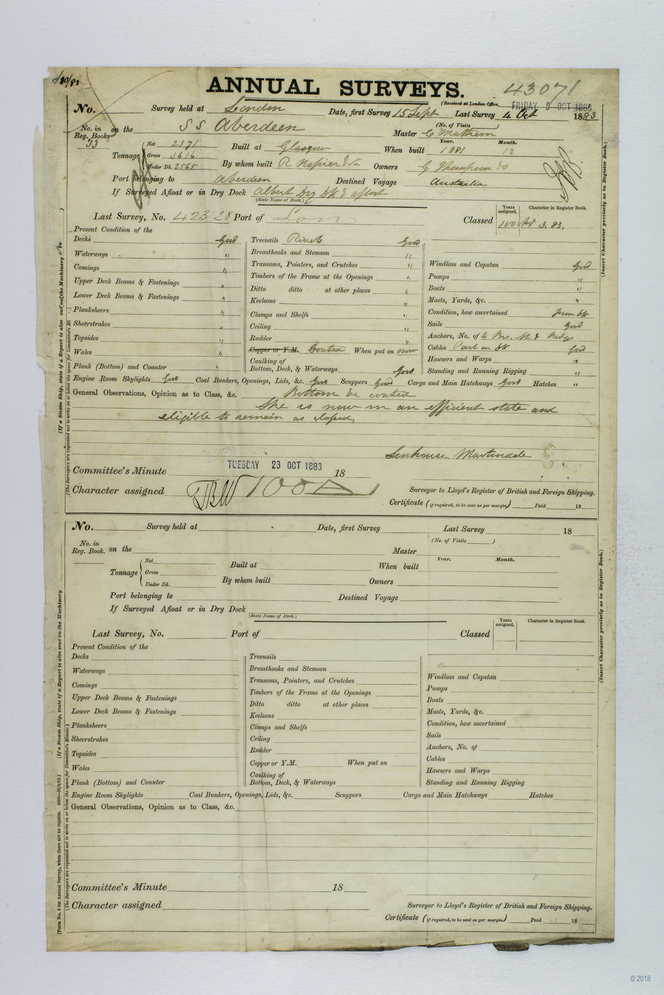 ANNUAL SURVEYS.
43071
(Received at London Office, FRIDAY 5 OCT 1883
No. Survey held at London Date, first Survey 15 Sept Last Survey 4 Oct 1883
(No. of Visits )
No. in Reg. Book. 33 on the SS Aberdeen Master C Matheson
Tonnage Net 2371 Gross 3616 Under Dk. 2565
Built at Glasgow When built Year. 1881 Month. 12
By whom built R Napier & Sn Owners G Thompson & Co
Port belonging to Aberdeen Destined Voyage Australia
If Surveyed Afloat or in Dry Dock Albert Dry Dk & afloat
(State Name of Dock.)
Last Survey, No. 42328 Port of Lon Classed Years assigned. 100A1 Character in Register Book. 3.83.
Present Condition of the
Decks Good
Waterways "
Comings "
Upper Deck Beams & Fastenings "
Lower Deck Beams & Fastenings "
Planksheers "
Sheerstrakes "
Topsides "
Wales "
Plank (Bottom) and Counter "
Treenails Rivets Good
Breasthooks and Stemson "
Transoms, Pointers, and Crutches "
Timbers of the Frame at the Openings "
Ditto ditto at other places "
Keelsons "
Clamps and Shelfs "
Ceiling "
Rudder "
Copper or Y.M. Coated When put on now
Caulking of Bottom, Deck, & Waterways Good
Windlass and Capstan Good
Pumps "
Boats "
Masts, Yards, &c. "
Condition, how ascertained from dk
Sails Good
Anchors, No. of 4 Brs. St & Kedge
Cables Part on dk Good
Hawsers and Warps "
Standing and Running Rigging "
Engine Room Skylights Good Coal Bunkers, Openings, Lids, &c. Good Scuppers Good Cargo and Main Hatchways Good Hatches "
General Observations, Opinion as to Class, &c. Bottom re coated
She is now in an efficient state and
eligible to remain as classed
Senhouse Martindale
Committee's Minute TUESDAY 23 OCT 1883 18
Character assigned 100A
Surveyor to Lloyd's Register of British and Foreign Shipping.
Certificate (if required, to be sent as per margin) Paid 18
No. Survey held at Date, first Survey Last Survey 18
(No. of Visits )
No. in Reg. Book. on the Master
Tonnage Net Gross Under Dk.
Built at When built Year. Month.
By whom built Owners
Port belonging to Destined Voyage
If Surveyed Afloat or in Dry Dock
(State Name of Dock.)
Last Survey, No. Port of Classed Years assigned. Character in Register Book.
Present Condition of the
Decks
Waterways
Comings
Upper Deck Beams & Fastenings
Lower Deck Beams & Fastenings
Planksheers
Sheerstrakes
Topsides
Wales
Plank (Bottom) and Counter
Treenails
Breasthooks and Stemson
Transoms, Pointers, and Crutches
Timbers of the Frame at the Openings
Ditto ditto at other places
Keelsons
Clamps and Shelfs
Ceiling
Rudder
Copper or Y.M. When put on
Caulking of Bottom, Deck, & Waterways
Windlass and Capstan
Pumps
Boats
Masts, Yards, &c.
Condition, how ascertained
Sails
Anchors, No. of
Cables
Hawsers and Warps
Standing and Running Rigging
Engine Room Skylights Coal Bunkers, Openings, Lids, &c. Scuppers Cargo and Main Hatchways Hatches
General Observations, Opinion as to Class, &c.
Committee's Minute 18
Character assigned
Surveyor to Lloyd's Register of British and Foreign Shipping.
Certificate (if required, to be sent as per margin) Paid 18
(Insert Character precisely as in Register Book.)
(Insert Character precisely as in Register Book.)
© 2018